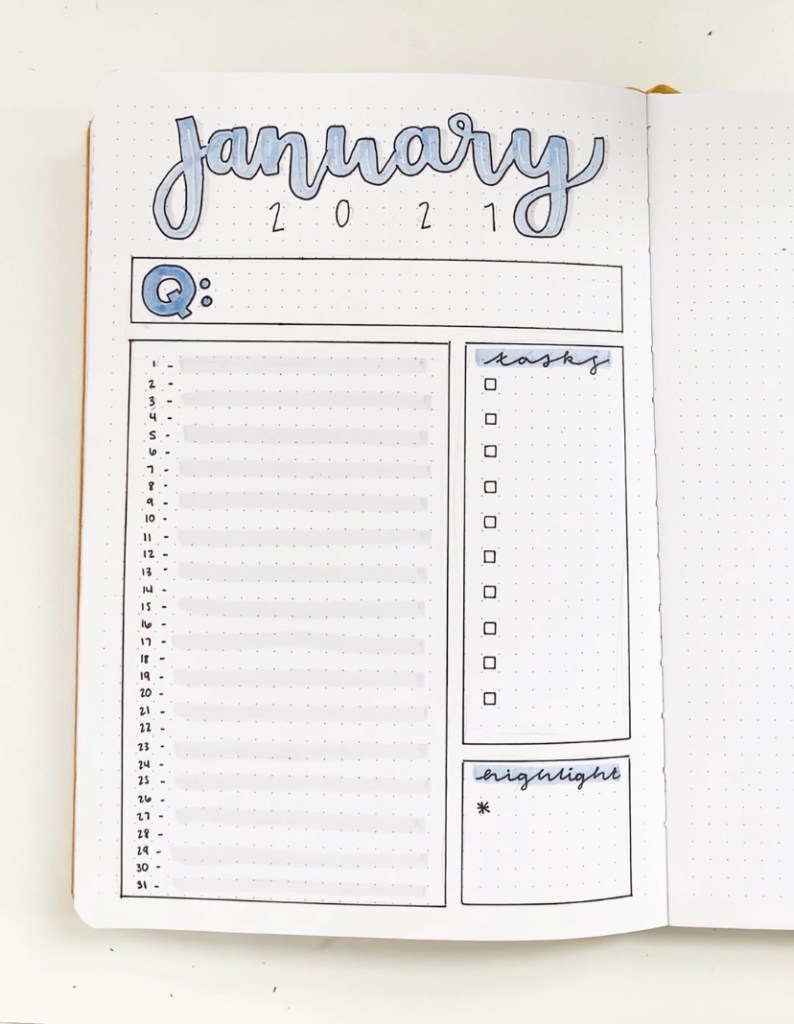 january
2021
Q:
1 -
2 -
3 -
4 -
5 -
6 -
7 -
8 -
9 -
10 -
11 -
12 -
13 -
14 -
15 -
16 -
17 -
18 -
19 -
20 -
21 -
22 -
23 -
24 -
25 -
26 -
27 -
28 -
29 -
30 -
31 -
tasks
highlight
*